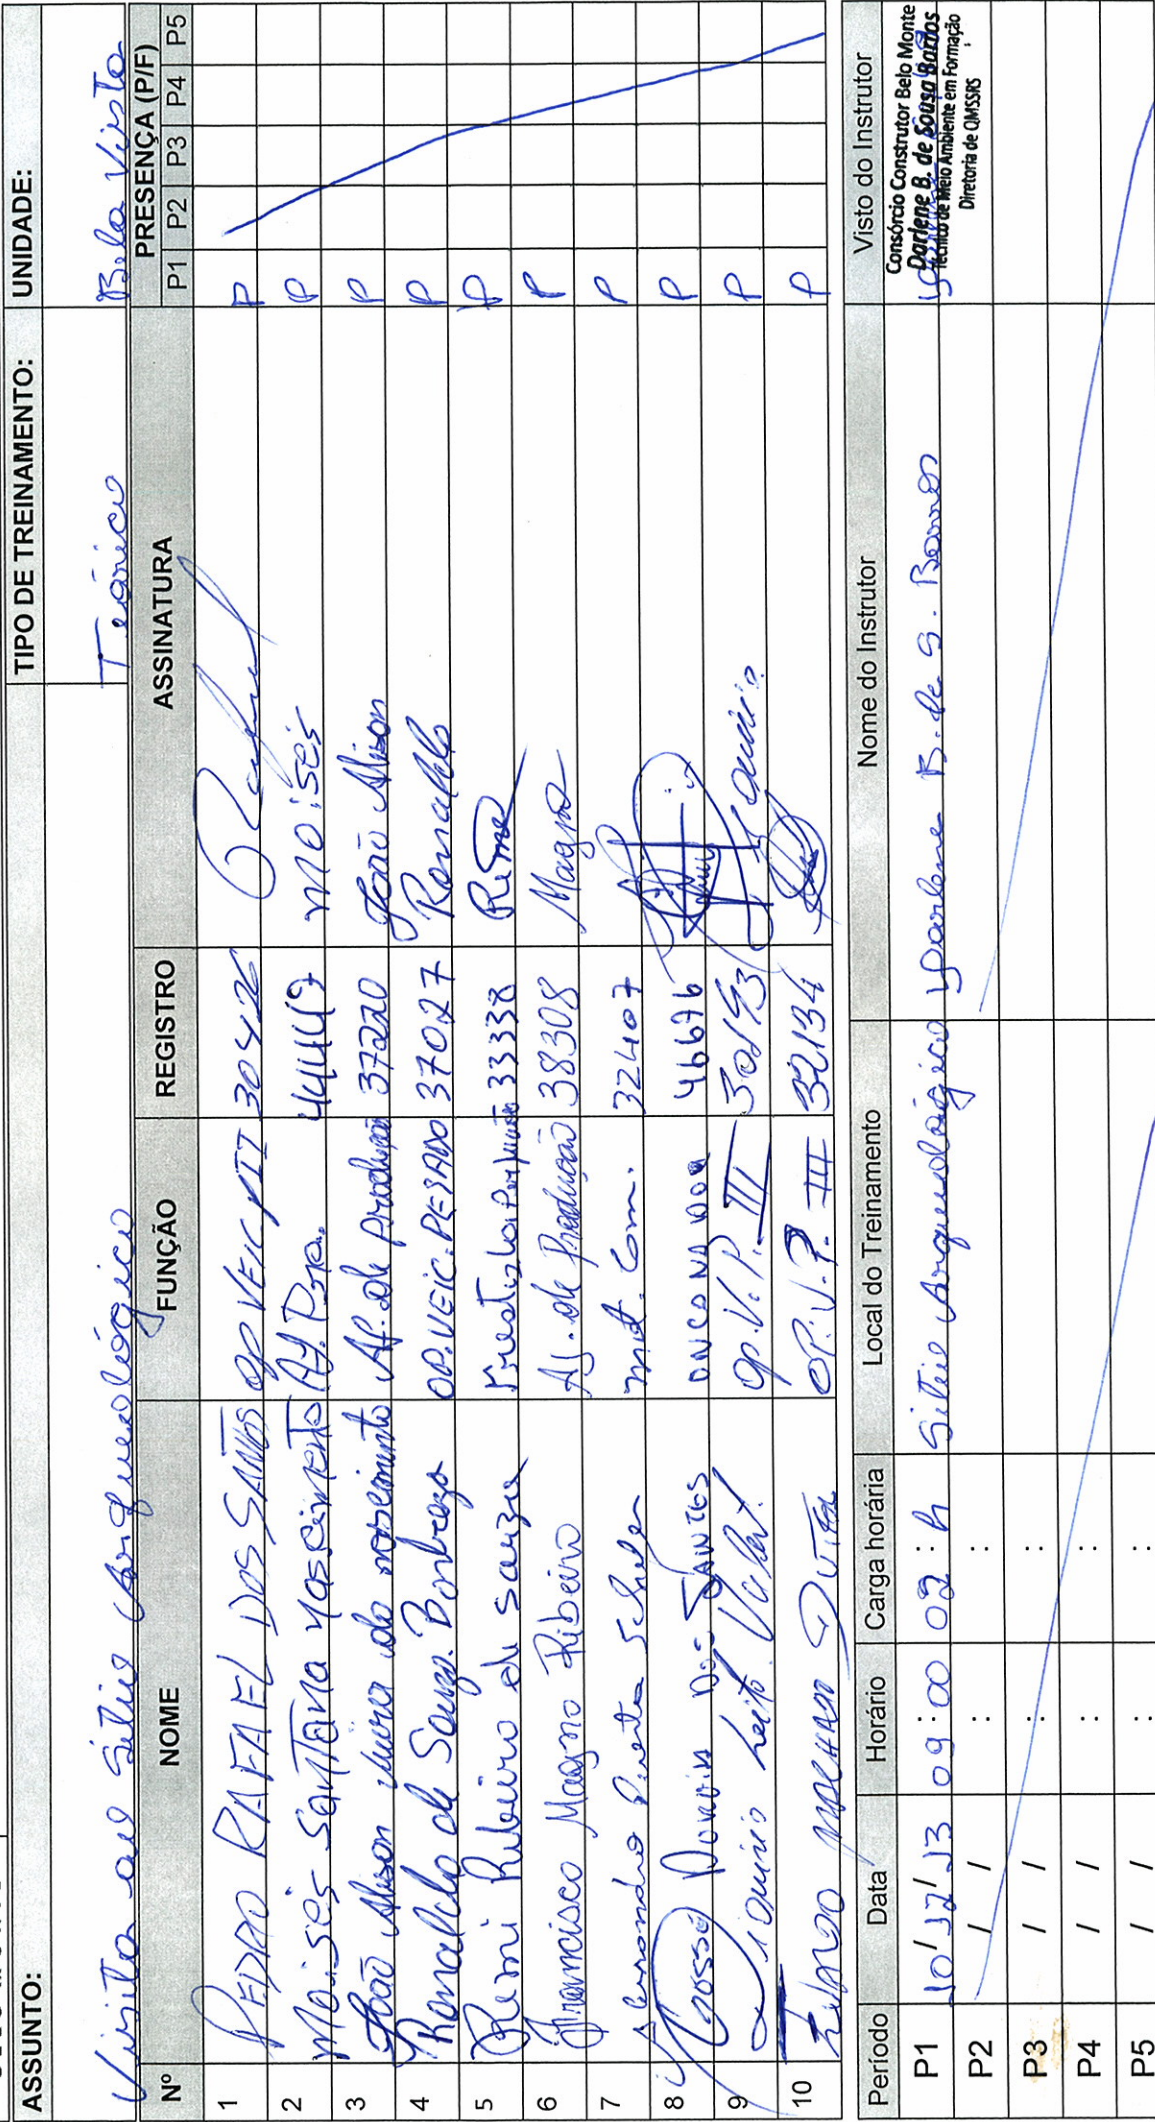 ASSUNTO: TIPO DE TREINAMENTO: UNIDADE:
Visita ao Sítio Arqueológico Teórico Bela Vista
Nº NOME FUNÇÃO REGISTRO ASSINATURA PRESENÇA (P/F)
P1 P2 P3 P4 P5
1 PEDRO RAFAEL DOS SANTOS OP VEIC III 30426 P
2 Moisés Santana Nascimento Aj. Pro. 44449 Moisés P
3 João Alison vieira do nascimento Aj. de Produção 37220 João Alison P
4 Ronaldo de Souza Barbosa OP. VEIC. PESADO 37027 Ronaldo P
5 Remi Ribeiro de souza 33338 P
6 Francisco Magno Ribeiro Aj. de Produção 38308 Magno P
7 32407 P
8 DOS SANTOS 46676 P
9 Leite Op. V. P. III P
10 MACHADO DUTRA OP. V. P. III 32134 P
Período Data Horário Carga horária Local do Treinamento Nome do Instrutor Visto do Instrutor
P1 10/12/13 09:00 02:h Sítio Arqueológico Darlene B. de S. Barros
Consórcio Construtor Belo Monte
Darlene B. de Sousa Barros
Técnico de Meio Ambiente em Formação
Diretoria de QMSSRS
P2 / / : :
P3 / / : :
P4 / / : :
P5 / / : :